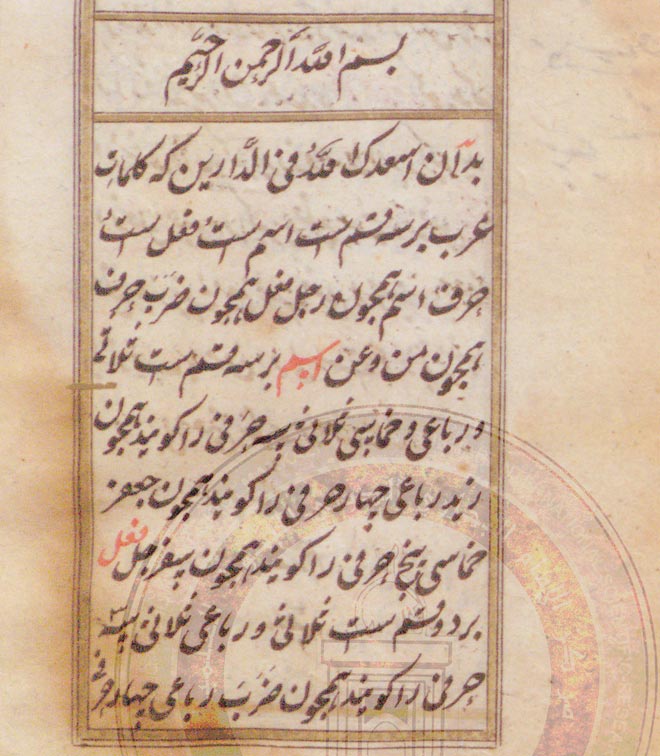 بسم الله الرحمن الرحیم
بدان اسعدک الله فی الدارین که کلمات
عرب بر سه قسم است اسم است فعل است
حرف اسم همچون رجل فعل همچون ضرب حرف
همچون من و عن اسم بر سه قسم ست ثلاثی
و رباعی و خماسی ثلاثی سه حرفی را گویند همچون
زید رباعی چهار حرفی را گویند همچون جعفر
خماسی پنج حرفی را گویند همچون سفرجل فعل
بر دو قسم ست ثلاثی و رباعی ثلاثی سه
حرفی را گویند همچون ضَرَبَ رباعی چهار حرفی